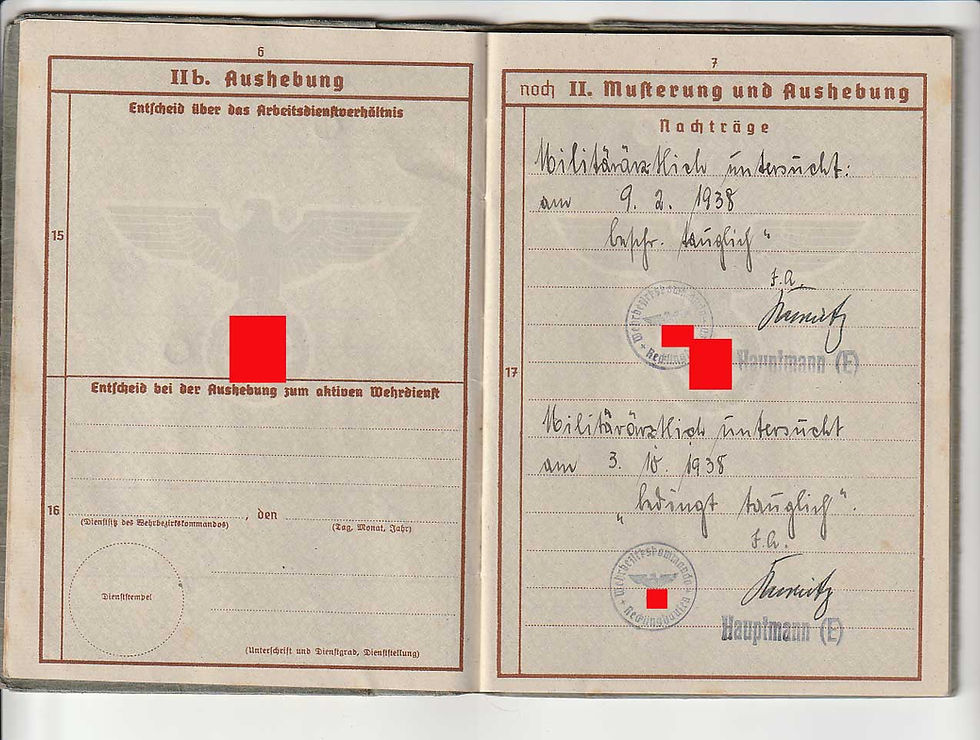 6
IIb. Aushebung
Entscheid über das Arbeitsdienstverhältnis
15
Entscheid bei der Aushebung zum aktiven Wehrdienst
16
, den
(Dienstsitz des Wehrbezirkskommandos)
(Tag, Monat, Jahr)
Dienststempel
(Unterschrift und Dienstgrad, Dienststellung)
7
noch II. Musterung und Aushebung
Nachträge
17
Militärärztlich untersucht:
am 9. 2. 1938
beschr. tauglich"
J. A.
Hauptmann (E)
Militärärztlich untersucht
am 3. 10. 1938
„bedingt tauglich".
J. A.
Wehrbezirkskommando
Hauptmann (E)